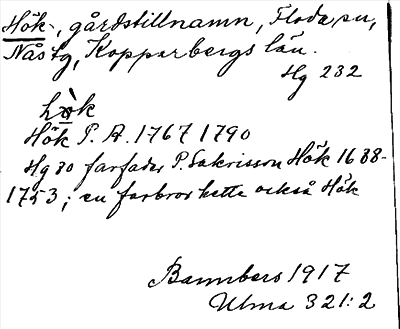 Hök-, gårdstillnamn, Floda sn,
Nås tg, Kopparbergs län.
Hg 232
hö̀k
Hök P. A. 1767 1790
Hg 80 farfader P. Sakrisson Hök 1688-
1753; en farbror hette också Hök
Bannbers 1917
Ulma 321:2